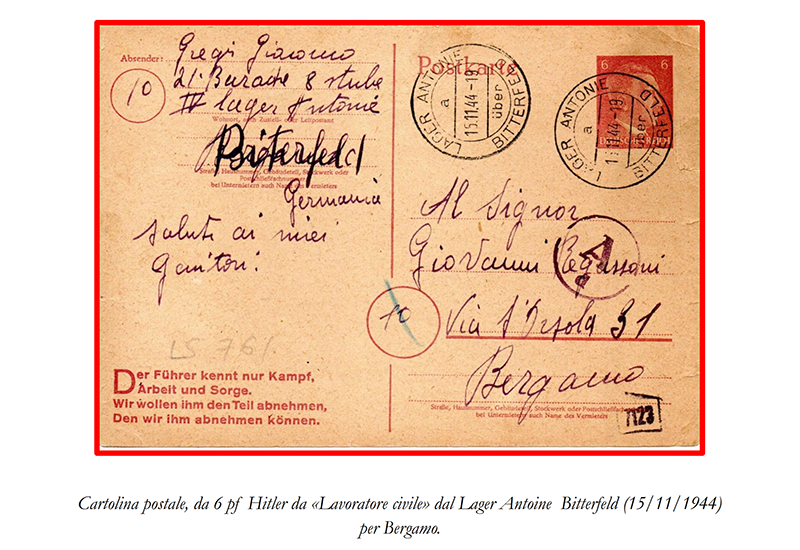 Absender:
Gregi Giacomo
21. Barache 8 stube
IV lager Antonie
10
Wohnort, auch Zustell- oder Leitpostamt
Bitterfeld
Straße, Hausnummer, Gebäudeteil, Stockwerk oder
Postschließfachnummer
bei Untermietern auch Name des Vermieters
Germania
saluti ai miei
genitori.
LS 761
Der Führer kennt nur Kampf,
Arbeit und Sorge.
Wir wollen ihm den Teil abnehmen,
Den wir ihm abnehmen können.
Postkarte
LAGER ANTONIE
a
15.11.44-19
über
BITTERFELD
6 6
DEUTSCHES REICH
LAGER ANTONIE
a
15.11.44-19
über
BITTERFELD
Al Signor
Giovanni
A
10
Via 31
Bergamo
Straße, Hausnummer, Gebäudeteil, Stockwerk oder Postschließfachnummer
bei Untermietern auch Name des Vermieters
7123
Cartolina postale, da 6 pf Hitler da «Lavoratore civile» dal Lager Antoine Bitterfeld (15/11/1944)
per Bergamo.